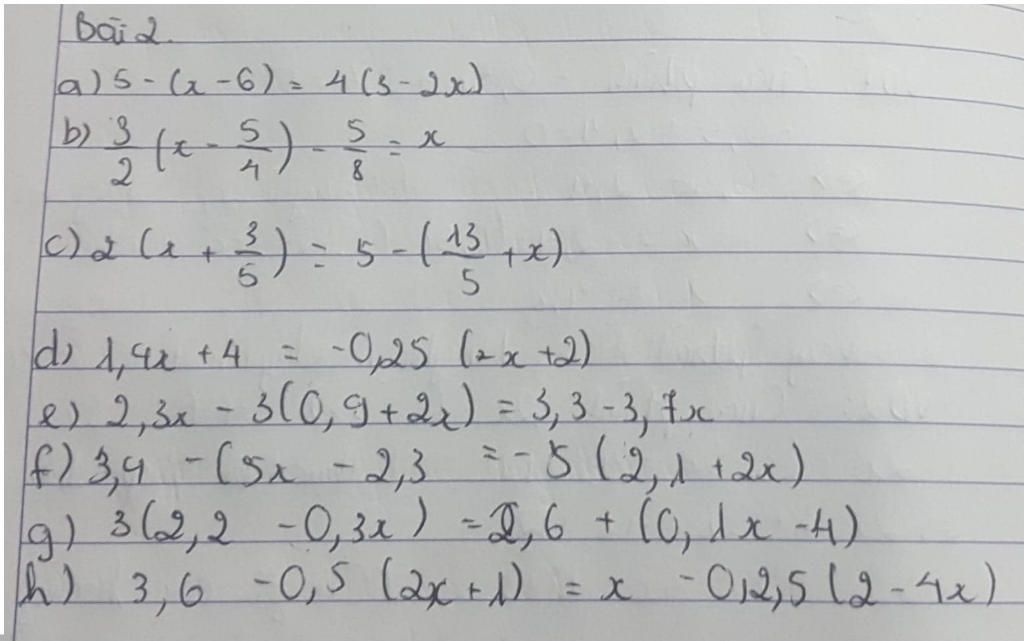 Bài 2.
a) 5 - (x - 6) = 4(3 - 2x)
b) 3/2 (x - 5/4) - 5/8 = x
c) 2 (x + 3/5) = 5 - (13/5 + x)
d) 1,4x + 4 = -0,25 (2x + 2)
e) 2,3x - 3(0,9 + 2x) = 3,3 - 3,7x
f) 3,4 - (5x - 2,3 = -5 (2,1 + 2x)
g) 3(2,2 - 0,3x) = 2,6 + (0,1x - 4)
h) 3,6 - 0,5 (2x + 1) = x - 0,2,5 (2 - 4x)